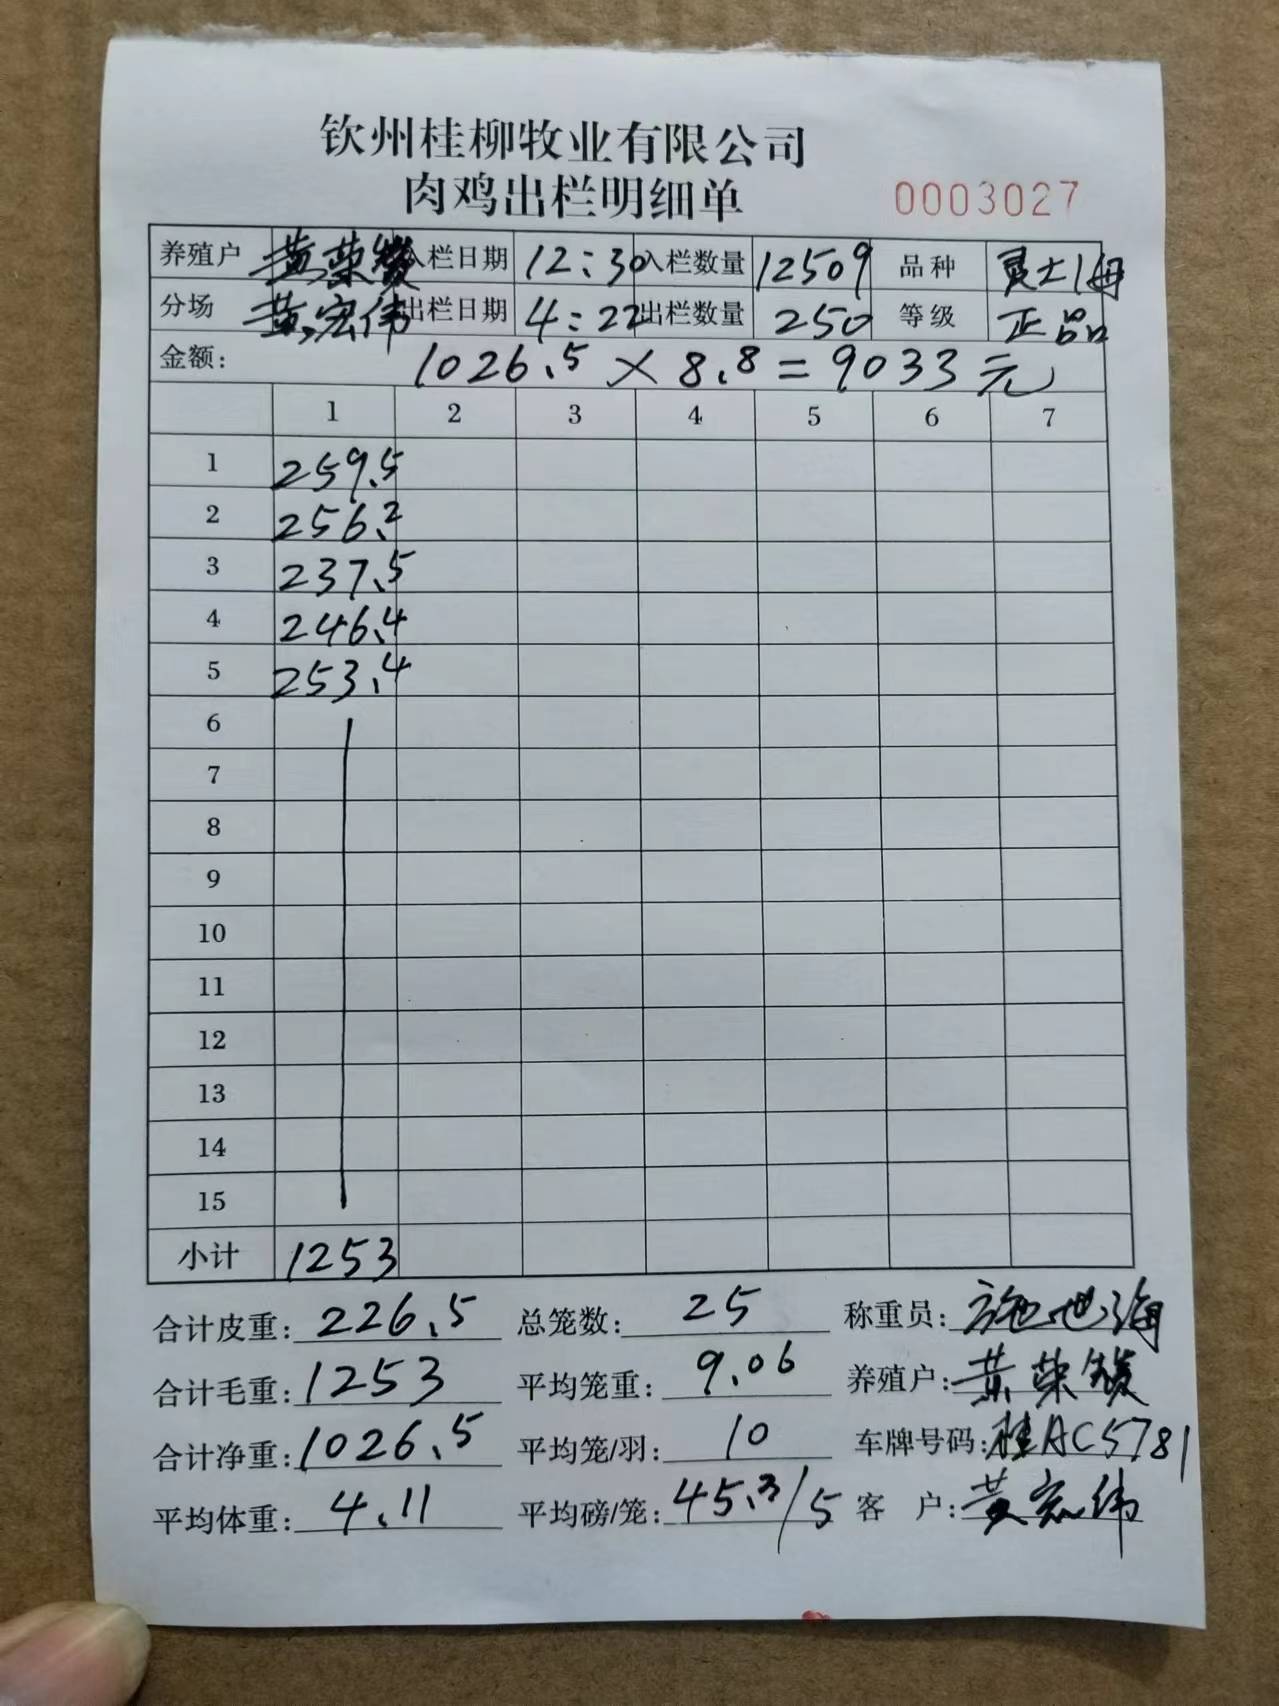 钦州桂柳牧业有限公司
肉鸡出栏明细单 0003027
养殖户 黄荣 入栏日期 12:30 入栏数量 12509 品种
分场 黄宏伟 出栏日期 4:22 出栏数量 250 等级 正品
金额: 1026.5 × 8.8 = 9033 元
1 2 3 4 5 6 7
1 259.5
2 256.2
3 237.5
4 246.4
5 253.4
6
7
8
9
10
11
12
13
14
15
小计 1253
合计皮重: 226.5 总笼数: 25 称重员: 施地海
合计毛重: 1253 平均笼重: 9.06 养殖户: 黄荣
合计净重: 1026.5 平均笼/羽: 10 车牌号码: 桂AC5781
平均体重: 4.11 平均磅/笼: 45.3/5 客 户: 黄宏伟